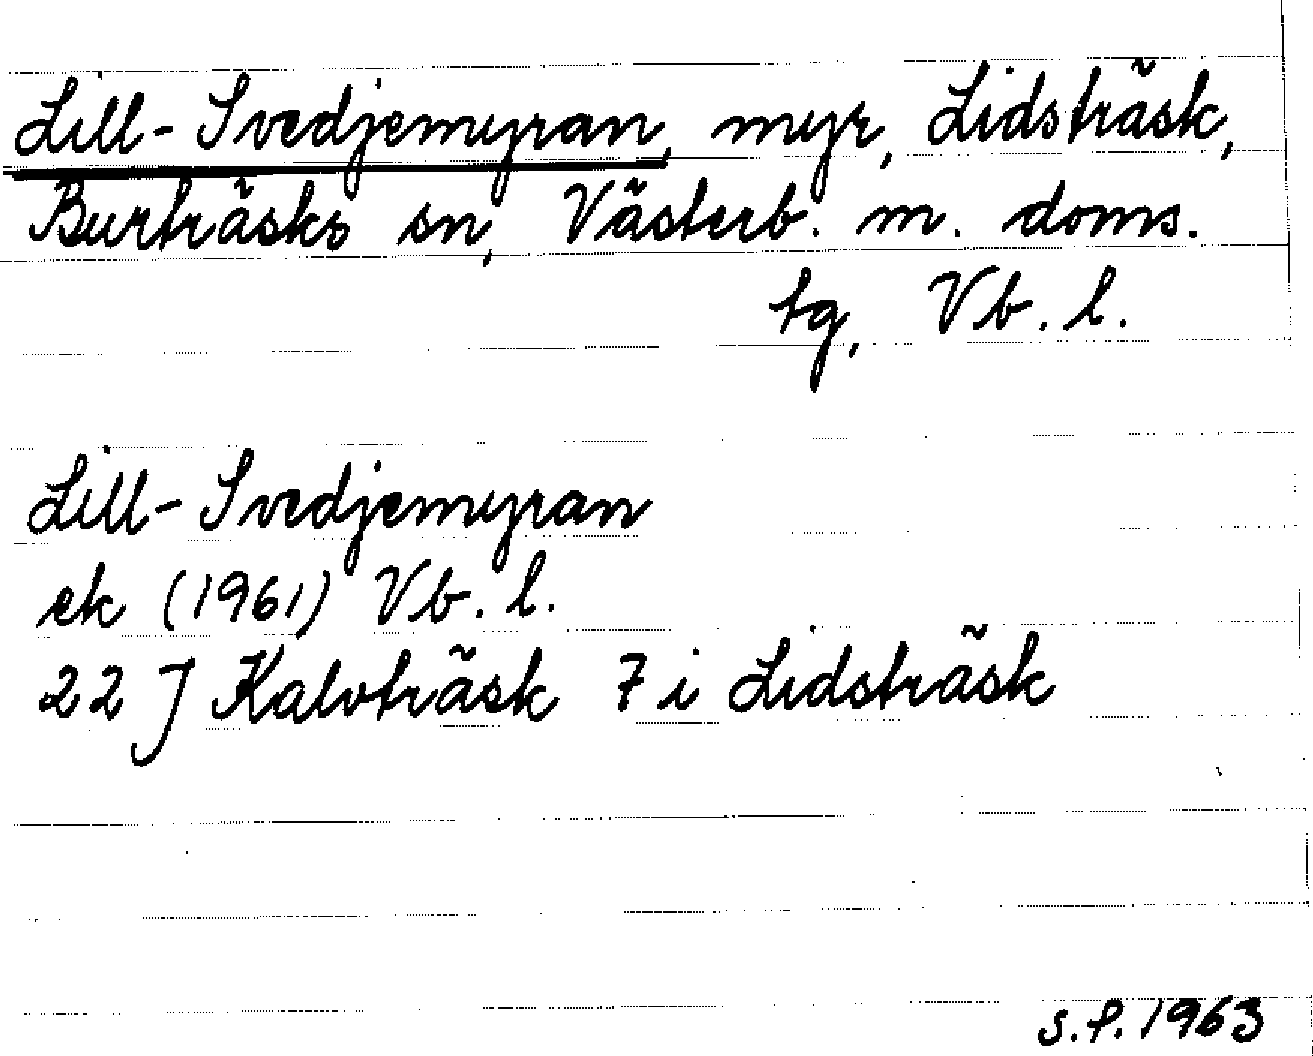 Lill-Svedjemyran, myr, Lidsträsk,
Burträsks sn, Västerb. m. doms.
tg, Vb. l.
Lill-Svedjemyran
ek (1961) Vb. l.
22 J Kalvträsk 7 i Lidsträsk
s.f. 1963